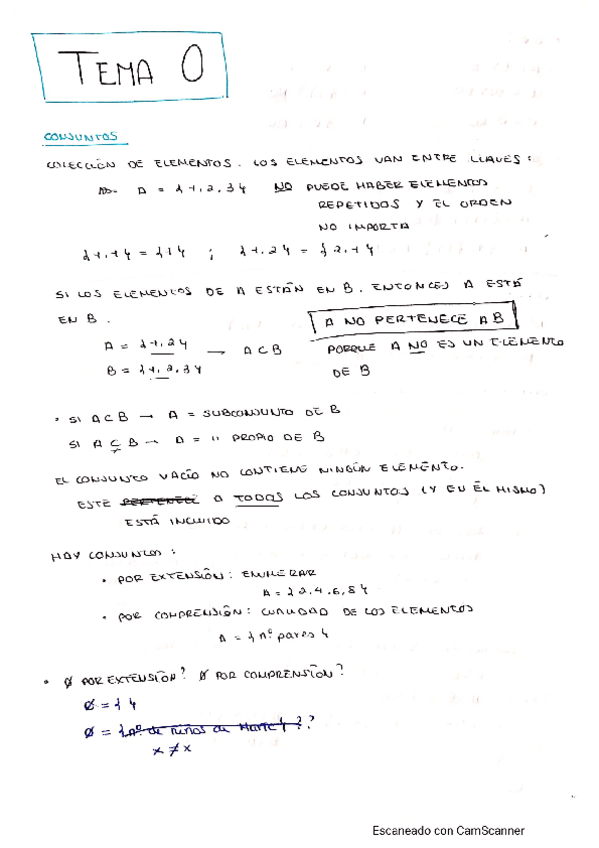 TEMA 0
CONJUNTOS
COLECCIÓN DE ELEMENTOS. LOS ELEMENTOS VAN ENTRE LLAVES:
A = {1,2,3} NO PUEDE HABER ELEMENTOS
REPETIDOS Y EL ORDEN
NO IMPORTA
{1,1} = {1} ; {1,2} = {2,1}
SI LOS ELEMENTOS DE A ESTÁN EN B. ENTONCES A ESTÁ
EN B.
A NO PERTENECE A B
A = {1,2} → A ⊂ B PORQUE A NO ES UN ELEMENTO
B = {1,2,3} DE B
• SI A ⊂ B → A = SUBCONJUNTO DE B
SI A ⊊ B → A = " PROPIO DE B
EL CONJUNTO VACÍO NO CONTIENE NINGÚN ELEMENTO.
ESTE PERTENECE A TODOS LOS CONJUNTOS (Y EN ÉL MISMO)
ESTÁ INCLUIDO
HAY CONJUNTOS:
• POR EXTENSIÓN: ENUMERAR
A = {2,4,6,8}
• POR COMPRENSIÓN: CUALIDAD DE LOS ELEMENTOS
A = {nº pares}
• Ø POR EXTENSIÓN? Ø POR COMPRENSIÓN?
Ø = { }
Ø = {nº de niños de Marte} ??
x ≠ x
Escaneado con CamScanner